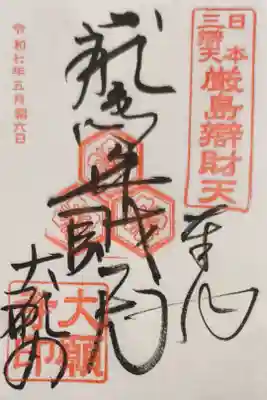 日本
三辨天
厳島辯財天
奉拝
厳島弁財天
大願寺
大願寺印
令和七年五月廿六日